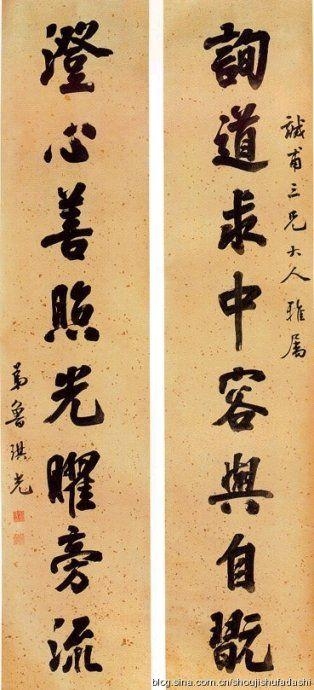 誠甫三兄大人雅屬
詢道求中容與自翫
澄心善照光曜旁流
弟魯琪光
blog.sina.com.cn/shoujishufadashi